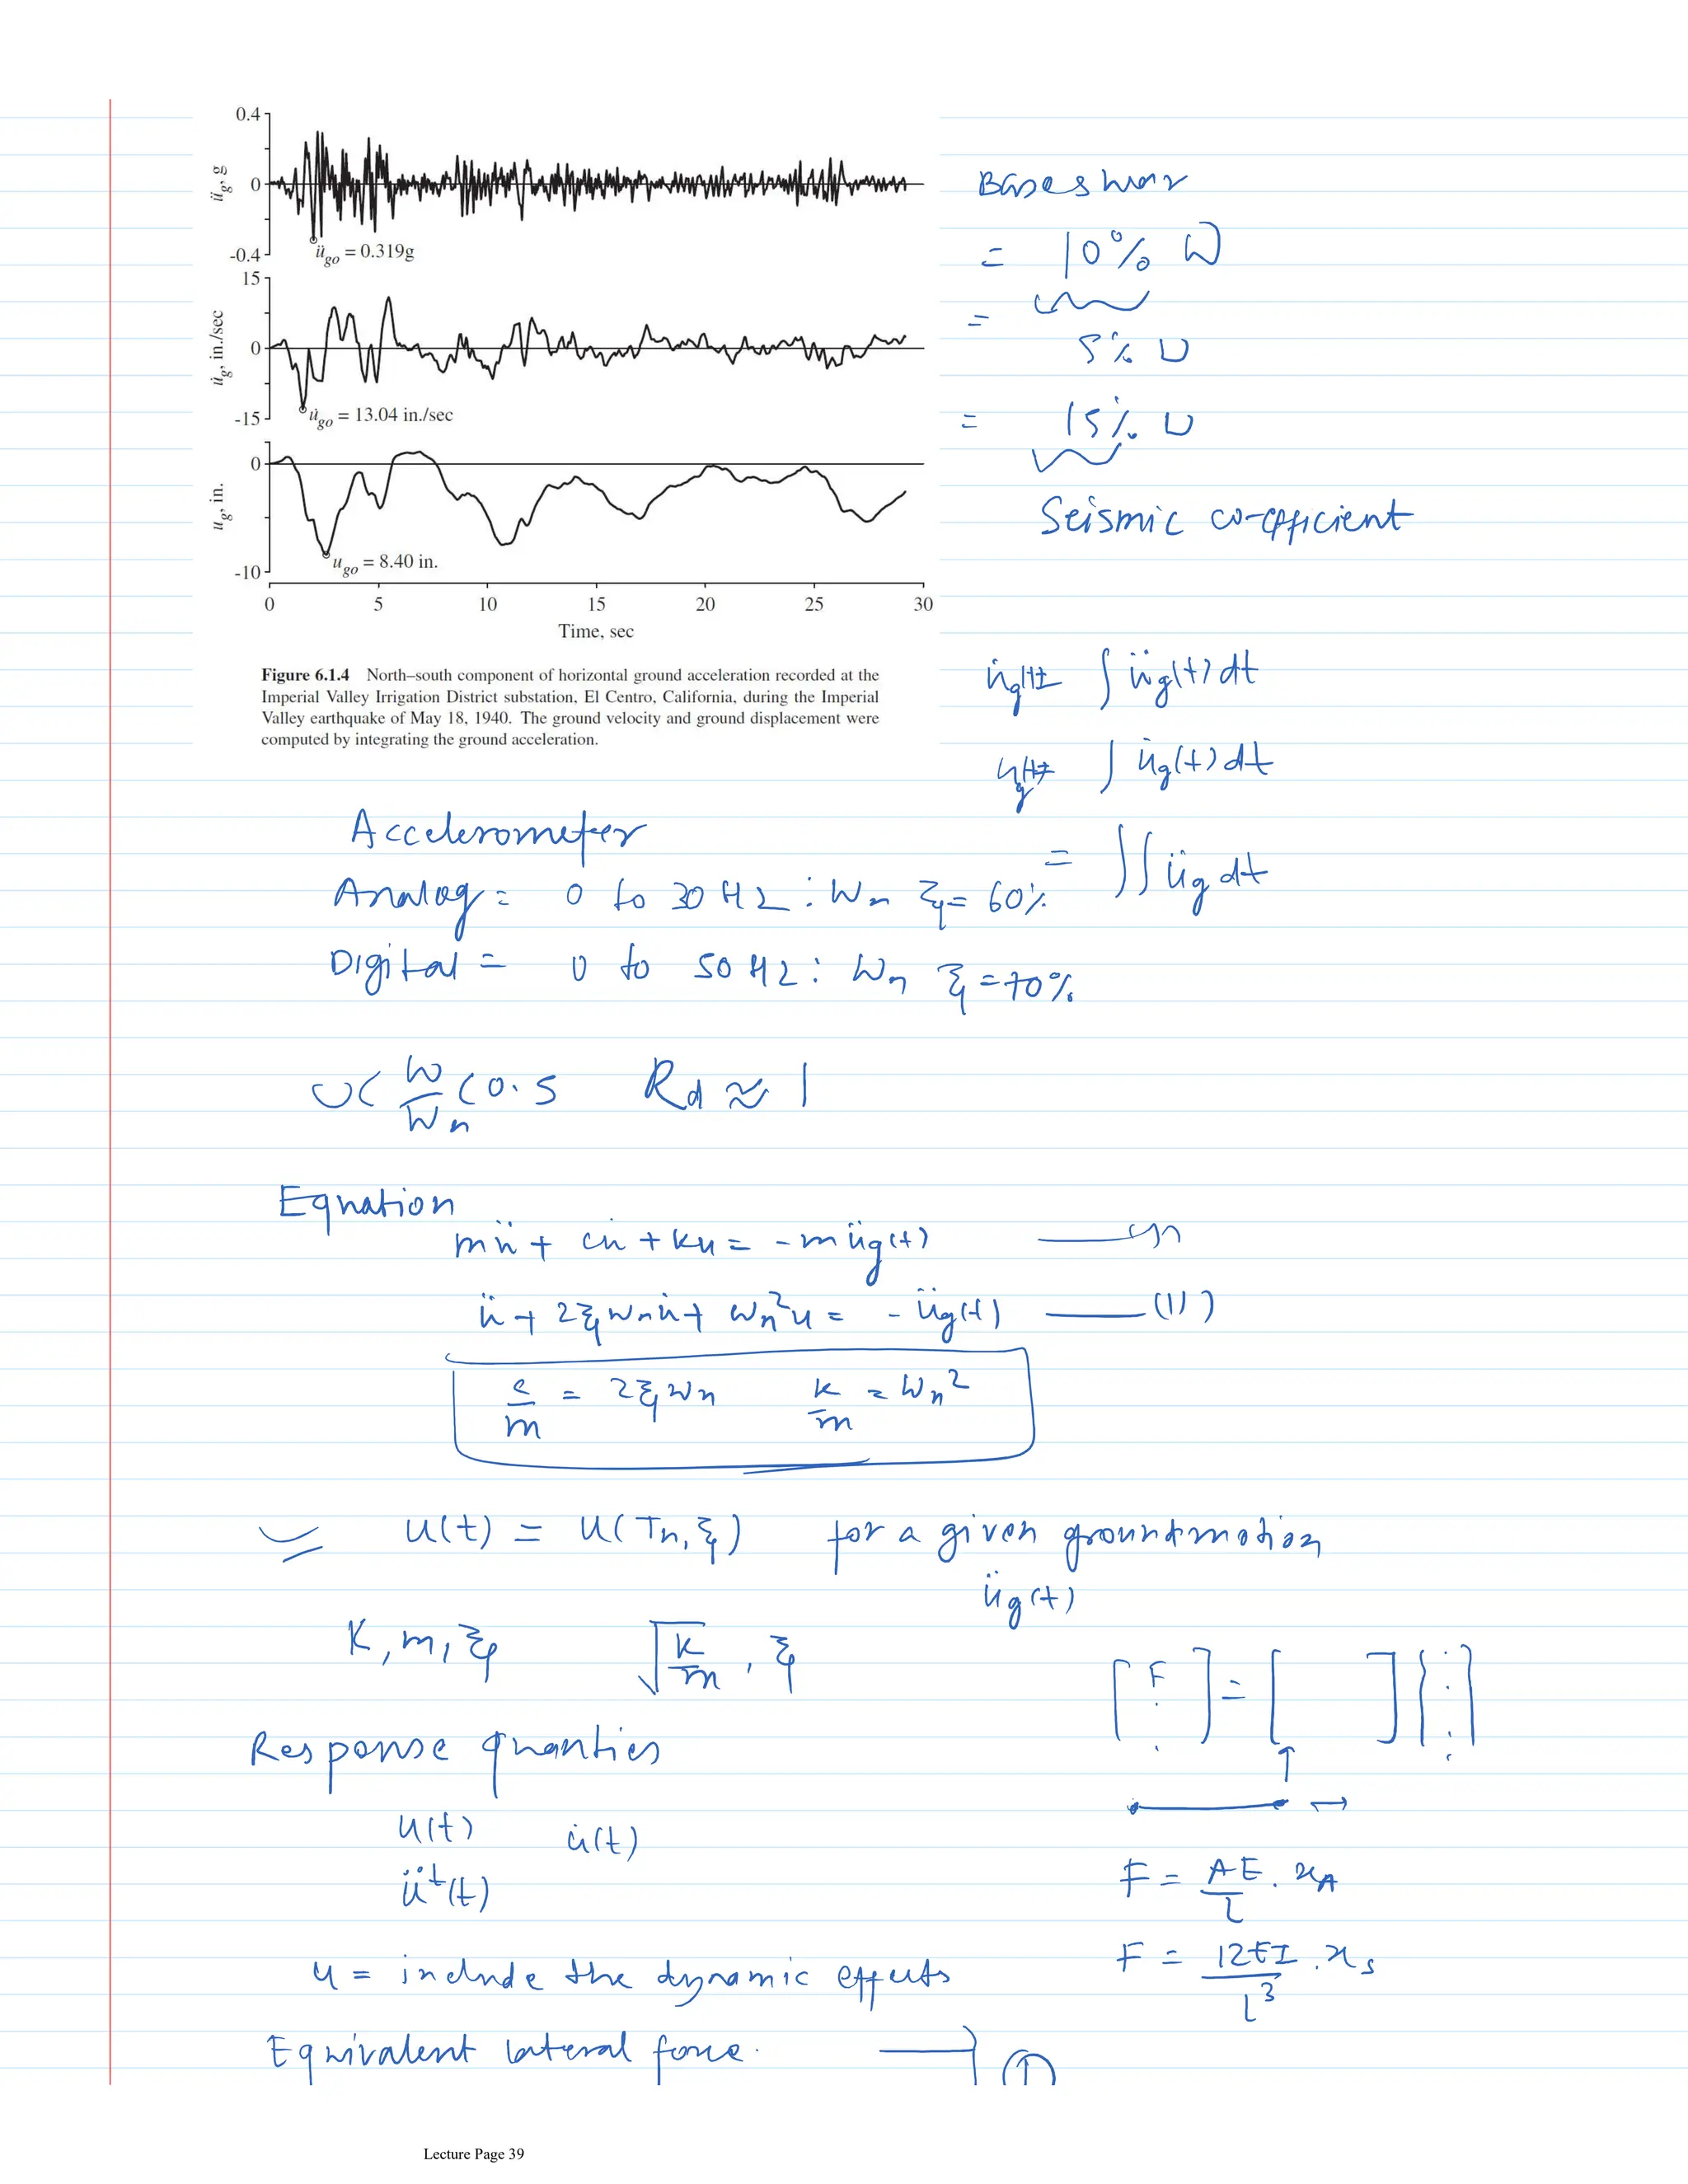 0.4
0
-0.4
üg, g
ügo = 0.319g
15
0
-15
u̇g, in./sec
u̇go = 13.04 in./sec
0
-10
ug, in.
ugo = 8.40 in.
0 5 10 15 20 25 30
Time, sec
Figure 6.1.4 North–south component of horizontal ground acceleration recorded at the
Imperial Valley Irrigation District substation, El Centro, California, during the Imperial
Valley earthquake of May 18, 1940. The ground velocity and ground displacement were
computed by integrating the ground acceleration.
Base shear
= 10% W
= 5% W
= 15% W
Seismic co-efficient
u̇g(t)= ∫ üg(t) dt
ug(t)= ∫ u̇g(t) dt
= ∫∫ üg dt
Accelerometer
Analog = 0 to 30 Hz : Wn ξ = 60%
Digital = 0 to 50 Hz : Wn ξ = 70%
0< W/Wn <0.5 Rd ≈ 1
Equation
mü + cu̇ + ku = - m üg(t)
ü + 2ξWnu̇ + Wn²u = - üg(t) (1)
c/m = 2ξWn k/m = Wn²
u(t) = u(Tn, ξ) for a given groundmotion
üg(t)
K, m, ξ √k/m , ξ
[F] = [ ] { }
Response quanties
u(t) u̇(t)
üᵗ(t)
F = AE/l . xA
u = include the dynamic effects
F = 12EI/l³ . xs
Equivalent lateral force.
Lecture Page 39